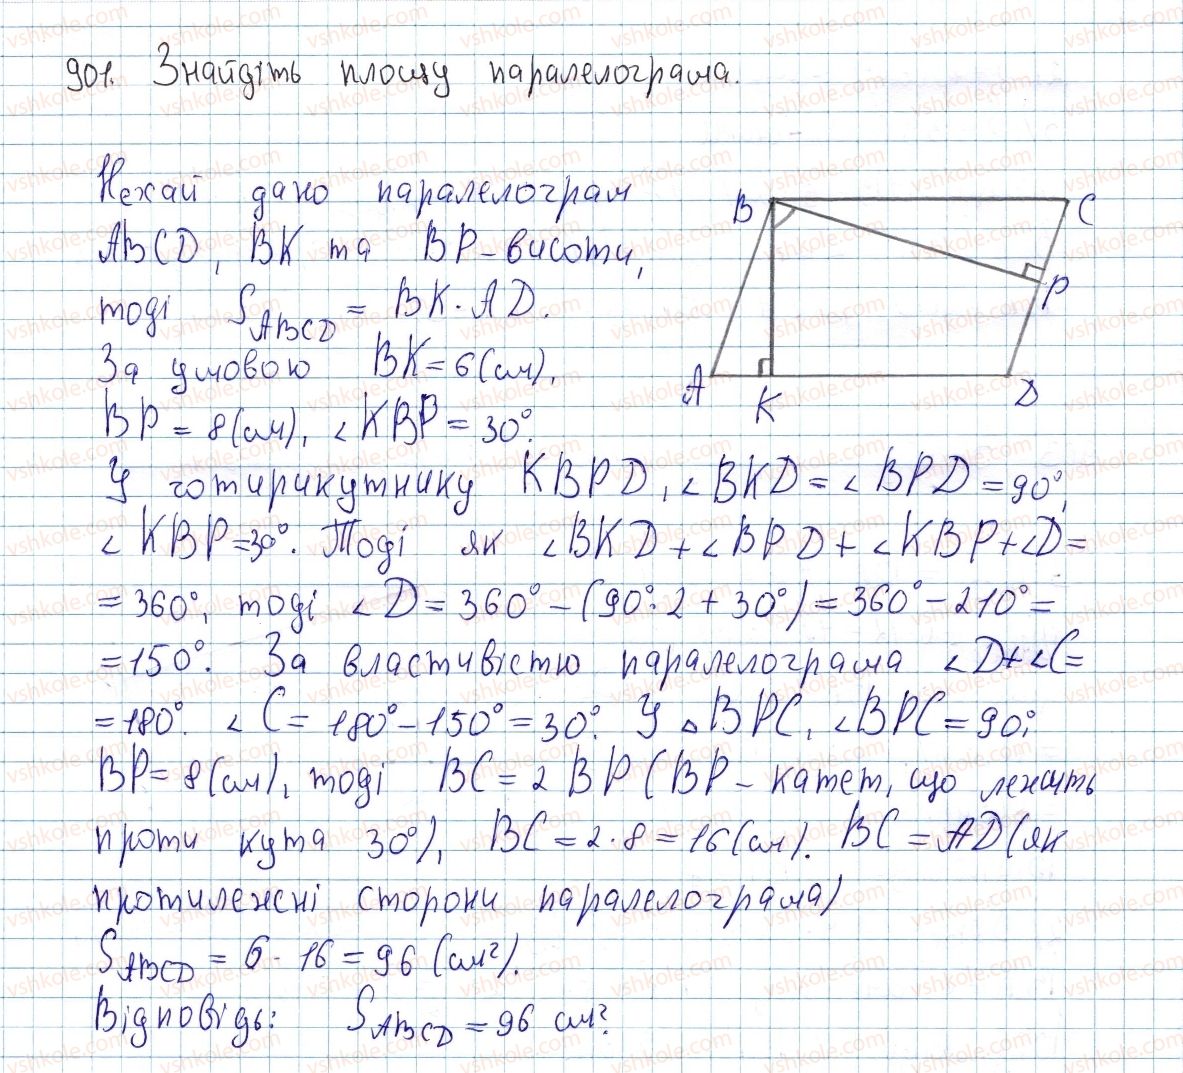 901. Знайдіть площу паралелограма.
Нехай дано паралелограм
ABCD, BK та BP - висоти,
тоді S ABCD = BK · AD.
За умовою BK = 6 (см),
BP = 8 (см), ∠KBP = 30°.
B
C
P
A
K
D
У чотирикутнику KBPD, ∠BKD = ∠BPD = 90°,
∠KBP = 30°. Тоді як ∠BKD + ∠BPD + ∠KBP + ∠D =
= 360°, тоді ∠D = 360° - (90° · 2 + 30°) = 360° - 210° =
= 150°. За властивістю паралелограма ∠D + ∠C =
= 180°. ∠C = 180° - 150° = 30°. У △BPC, ∠BPC = 90°;
BP = 8 (см), тоді BC = 2 BP (BP - катет, що лежить
проти кута 30°), BC = 2 · 8 = 16 (см). BC = AD (як
протилежні сторони паралелограма)
S ABCD = 6 · 16 = 96 (см²).
Відповідь: S ABCD = 96 см².
vshkole.com